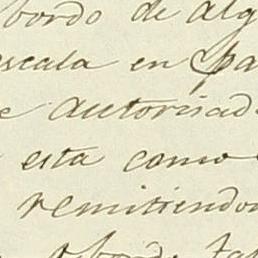 bordo de alg
escala en pa
e autorisad
esta como
remitiendo